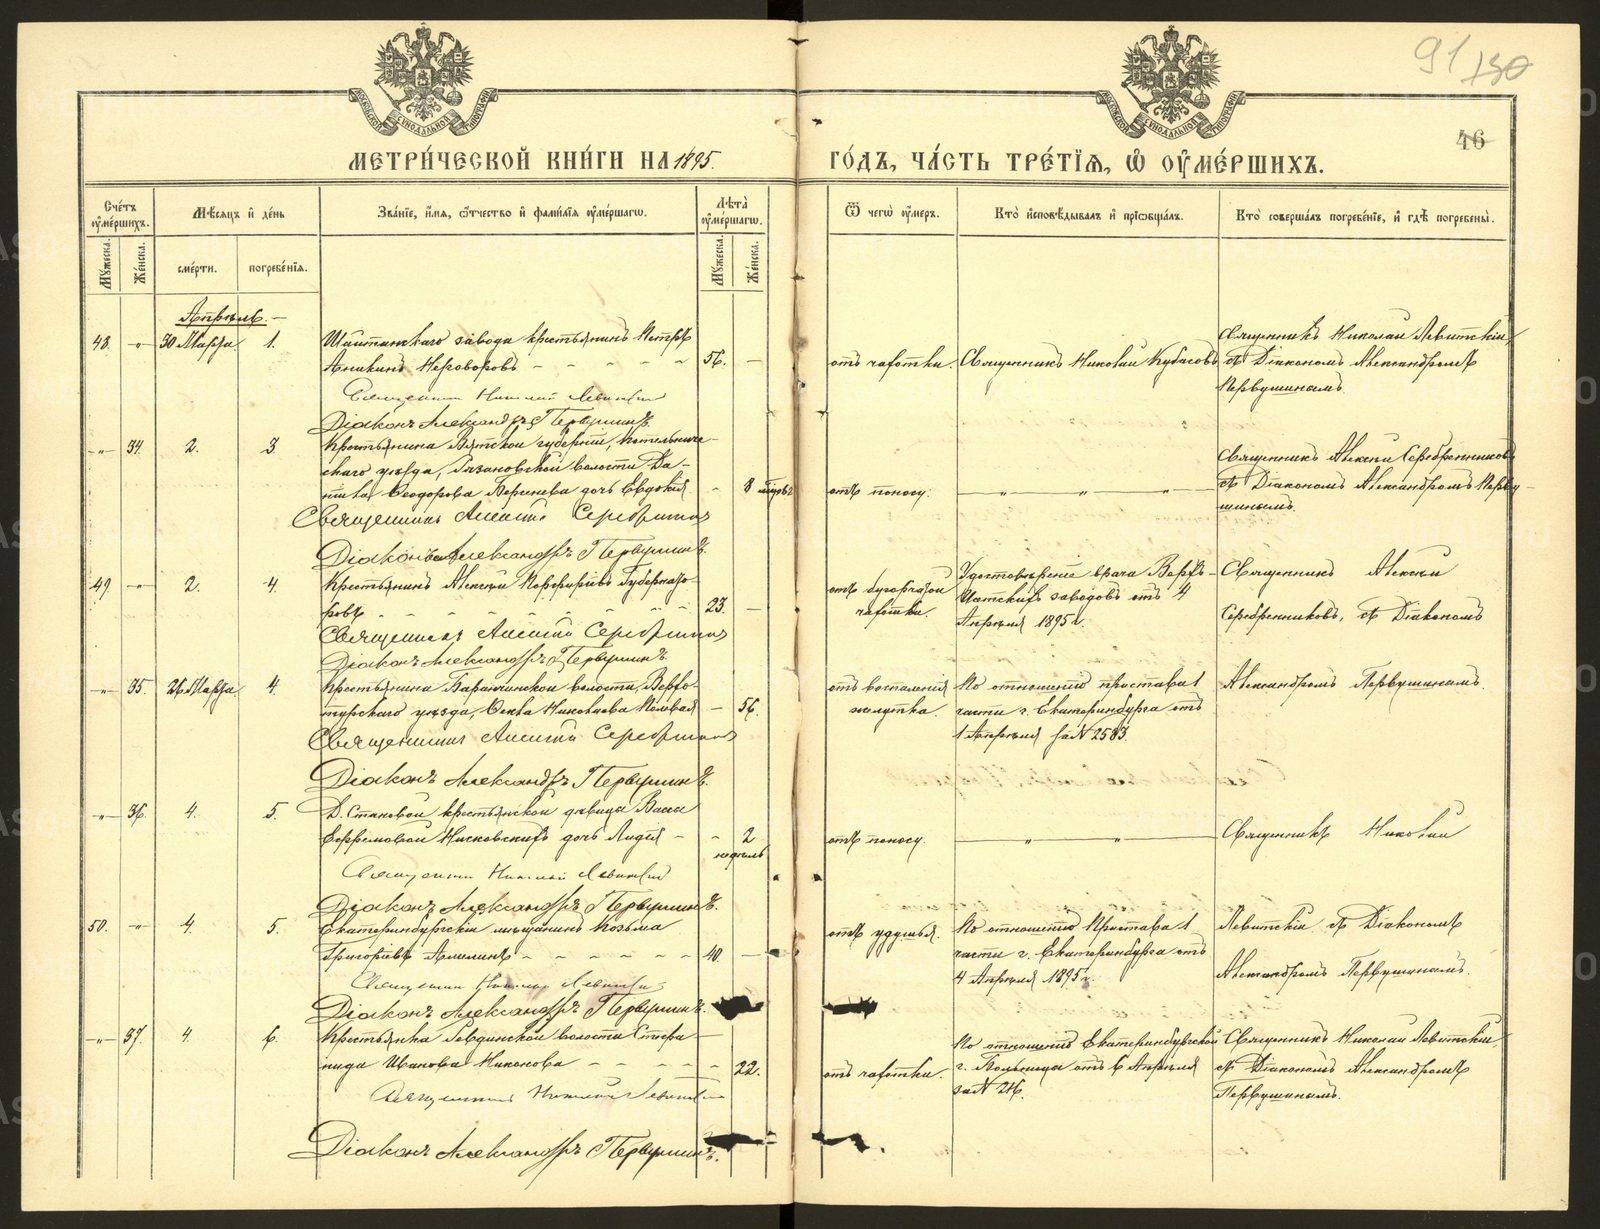 91 130
46
МЕТРИ́ЧЕСКОЙ КНИ́ГИ НА 1895
ГО́ДЪ, ЧА́СТЬ ТРЕ́ТІѦ, Ѡ҆ ОУ҆МЕ́РШИХЪ.
Сче́тъ оу҆ме́ршихъ.
Мꙋ́жеска.
Же́нска.
Мѣ́сѧцъ и҆ де́нь
сме́рти.
погребе́нїѧ.
Зва́нїе, и҆́мѧ, ѻ҆́тчество и҆ фами́лїѧ оу҆ме́ршагѡ.
Лѣ́та оу҆ме́ршагѡ.
Мꙋ́жеска.
Же́нска.
Ѿ чегѡ̀ оу҆́меръ.
Кто̀ и҆сповѣ́дывалъ и҆ прїѡбща́лъ.
Кто̀ соверша́лъ погребе́нїе, и҆ гдѣ̀ погребены̀.
Апрѣль.
48. - 30 Марта 1.
Шайтанскаго завода крестьянинъ Петръ
Аникинъ Нероворовъ 56. -
отъ чахотки. Священникъ Николай Кубасовъ
Священникъ Николай Левитскій,
съ Діакономъ Александромъ
Первушинымъ.
Священникъ Николай Левитскій
Діаконъ Александръ Первушинъ.
- 34. 2. 3.
Крестьянина Вятской губерніи, Котельниче-
скаго уѣзда, волости Да-
Ѳеодорова дочь Евдокія - 8
отъ поносу.
Священникъ Алексій Серебренниковъ
съ Діакономъ Александромъ Перву-
шинымъ.
Священникъ Алексій Серебренниковъ
Діаконъ Александръ Первушинъ.
49 - 2. 4.
Крестьянинъ Алексѣй Порфирьевъ Губернато-
ровъ 23. -
отъ бугорчатой
чахотки.
Удостовѣреніе врача Верхъ-
Исетскихъ заводовъ отъ 4
Апрѣля 1895 г.
Священникъ Алексій
Серебренниковъ, съ Діакономъ
Священникъ Алексій Серебренниковъ
Діаконъ Александръ Первушинъ.
- 35. 26 Марта 4.
Крестьянина Баранчинской волости, Верхо-
турскаго уѣзда, Ѳекла Николаева Полевая - 56.
отъ воспаленія
желудка.
По отношенію пристава 1
части г. Екатеринбурга отъ
1 Апрѣля за № 2583.
Александромъ Первушинымъ.
Священникъ Алексій Серебренниковъ
Діаконъ Александръ Первушинъ.
- 36. 4. 5.
Д. Становой крестьянской дѣвицы Вассы
Ефремовой дочь Лидія - 2
недѣль
отъ поносу.
Священникъ Николай
Священникъ Николай Левитскій
Діаконъ Александръ Первушинъ.
50. - 4. 5.
Екатеринбургскій мѣщанинъ Козьма
Григорьевъ 40. -
отъ удушья.
По отношенію Пристава 1
части г. Екатеринбурга отъ
4 Апрѣля 1895 г.
Левитскій съ Діакономъ
Александромъ Первушинымъ.
Священникъ Николай Левитскій
Діаконъ Александръ Первушинъ.
- 37. 4. 6.
Крестьянка Ревдинской волости Стефа-
нида Иванова Никонова - 22.
отъ чахотки.
По отношенію Екатеринбургской
г. Больницы отъ 6 Апрѣля
за № 216.
Священникъ Николай Левитскій,
съ Діакономъ Александромъ
Первушинымъ.
Священникъ Николай Левитскій
Діаконъ Александръ Первушинъ.